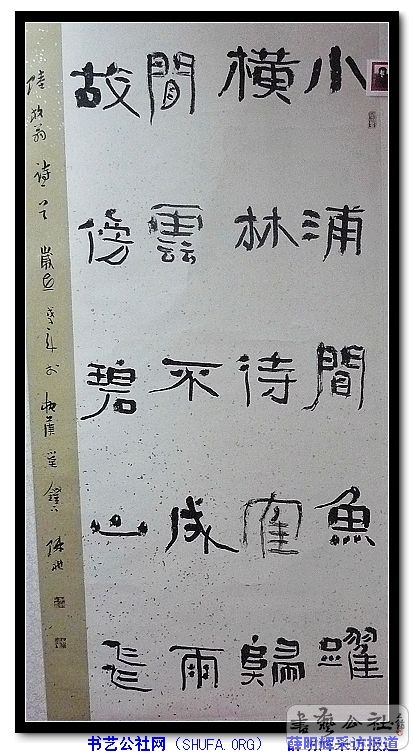 小浦聞魚躍
橫林待寉歸
間雲不成雨
故傍碧山飛
陸放翁詩
書藝公社
书艺公社网（SHUFA.ORG） 薛明辉采访报道